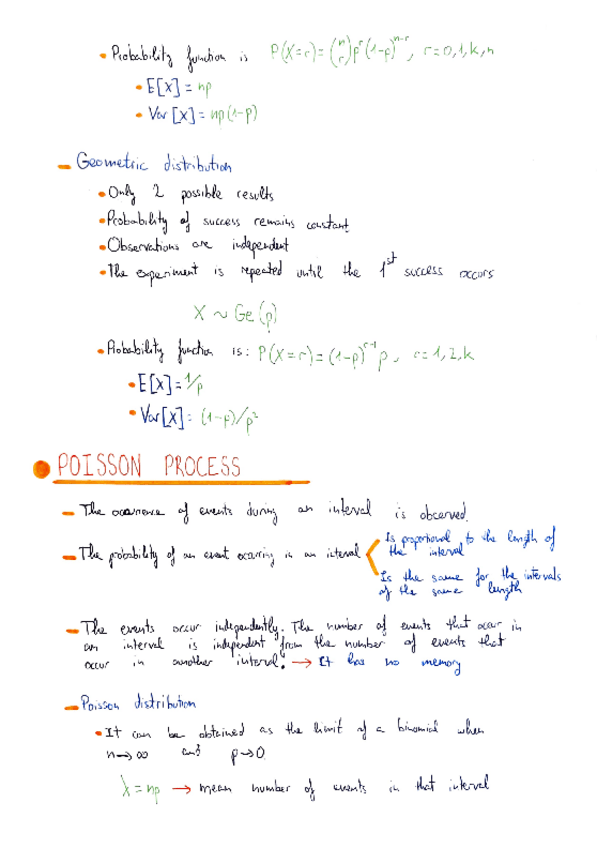 • Probability function is P(X=r) = (n r) p^r (1-p)^n-r, r=0,1,k,n
• E[X] = np
• Var [X] = np(1-p)
- Geometric distribution
• Only 2 possible results
• Probability of success remains constant
• Observations are independent
• The experiment is repeated until the 1st success occurs
X ~ Ge(p)
• Probability function is: P(X=r) = (1-p)^r-1 p, r=1,2,k
• E[X] = 1/p
• Var[X] = (1-p)/p²
• POISSON PROCESS
- The occurrence of events during an interval is observed.
- The probability of an event occurring in an interval
Is proportional to the length of
the interval
Is the same for the intervals
of the same length
- The events occur independently. The number of events that occur in
an interval is independent from the number of events that
occur in another interval. → It has no memory
- Poisson distribution
• It can be obtained as the limit of a binomial when
n→∞ and p→0
λ = np → mean number of events in that interval